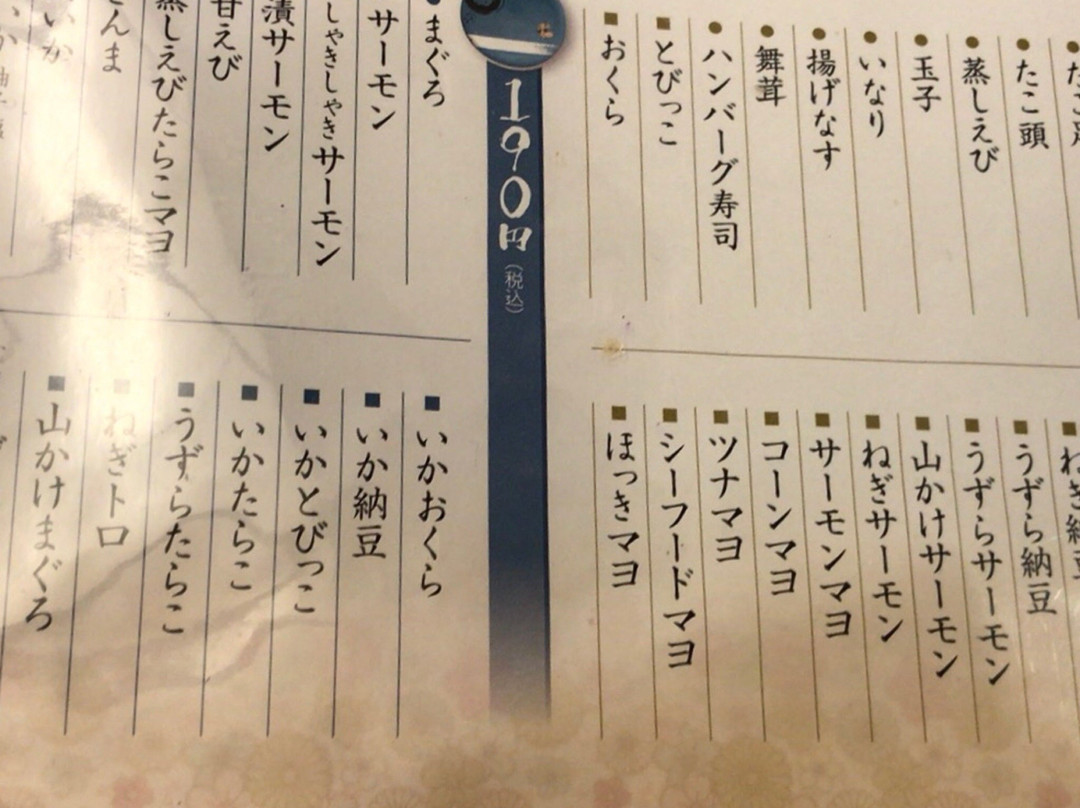 たこ頭
蒸しえび
玉子
いなり
揚げなす
舞茸
ハンバーグ寿司
とびっこ
おくら
うずら納豆
うずらサーモン
山かけサーモン
ねぎサーモン
サーモンマヨ
コーンマヨ
ツナマヨ
シーフードマヨ
ほっきマヨ
190円(税込)
まぐろ
サーモン
しゃきしゃきサーモン
漬サーモン
甘えび
蒸しえびたらこマヨ
いか
いかおくら
いか納豆
いかとびっこ
いかたらこ
うずらたらこ
ねぎトロ
山かけまぐろ